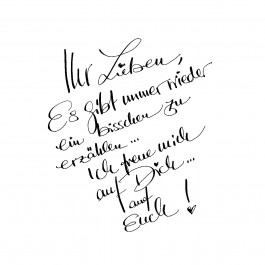 Ihr Lieben,
Es gibt immer wieder
ein bisschen zu
erzählen...
Ich freue mich
auf Dich...
auf
Euch!